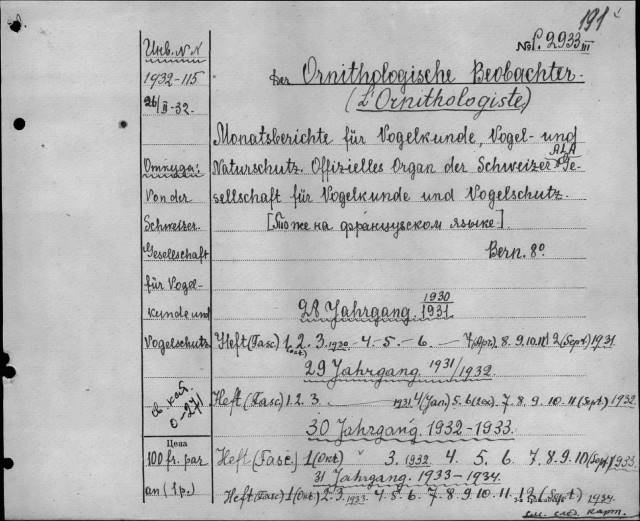 191
№ P. 2933 III
Инв. N.N
1932-115
26/II-32.
Откуда:
Von der
Schweizer.
Gesellschaft
für Vogel-
kunde und
Vogelschutz
св. кат.
0-271
Цена
100 fr. par
an (1 p.)
Der Ornithologische Beobachter.
(L'Ornithologiste)
Monatsberichte für Vogelkunde, Vogel- und
Naturschutz. Offizielles Organ der Schweizer ALA Ge-
sellschaft für Vogelkunde und Vogelschutz.
[Тоже на французском языке].
Bern. 8°
28 Jahrgang. 1930/1931
Heft (Fasc) 1. 2. 3. 1930 - 4. - 5. - 6. - 7 (Apr). 8. 9. 10. 11 12 (Sept) 1931
(Oct)
29 Jahrgang. 1931/1932.
Heft (Fasc) 1. 2. 3. 1931 4 (Jan) 5. 6. 7. 8. 9. 10. 11 (Sept) 1932
30 Jahrgang. 1932-1933.
Heft (Fasc.) 1 (Okt) " 3. 1932 4. 5. 6. 7. 8. 9. 10 (Sept) 1933
31 Jahrgang. 1933-1934.
Heft (Fasc) 1 (Okt) 2. 3. 1933. 4. 5. 6. 7. 8. 9. 10. 11. 12 (Sept) 1934.
см. след. карт.